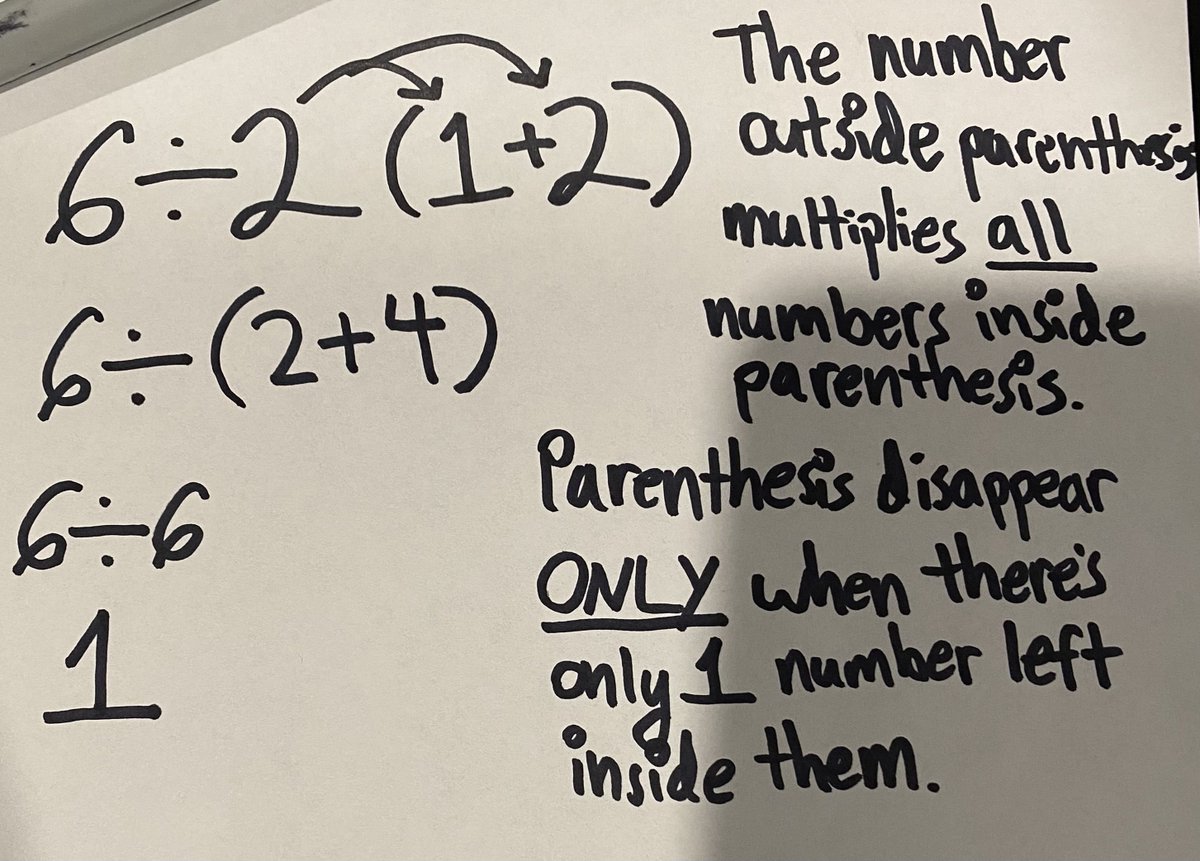 6÷2(1+2)
6÷(2+4)
6÷6
1
The number
outside parenthesis
multiplies all
numbers inside
parenthesis.
Parenthesis disappear
ONLY when there's
only 1 number left
inside them.